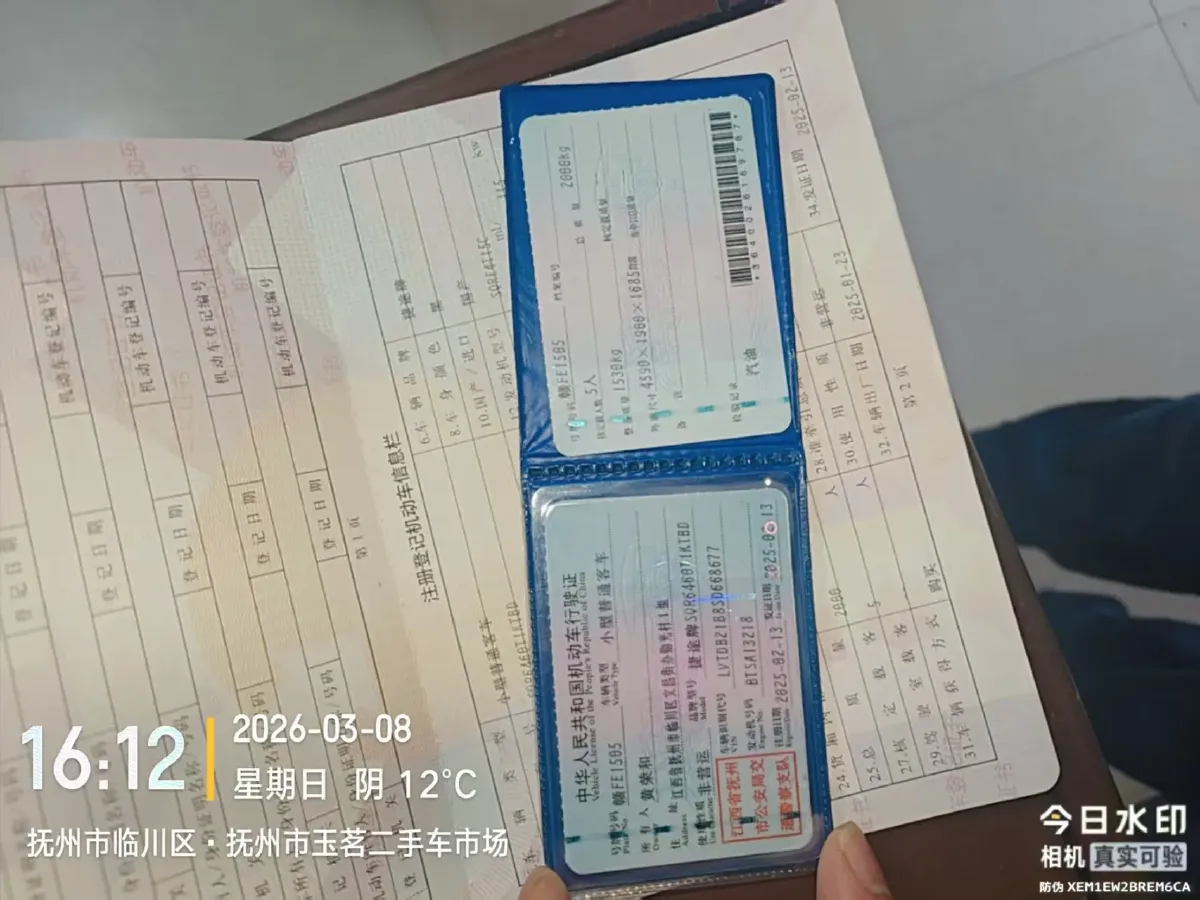 中华人民共和国机动车行驶证
Vehicle License of the People's Republic of China
号牌号码 赣FE1505 车辆类型 小型普通客车
Plate No. Vehicle Type
所有人 黄荣和
Owner
住址 江西省抚州市临川区文昌街办勤光村1组
Address
使用性质 非营运 品牌型号 捷途牌SQR6460J1KTBD
Use Character Model
江西省抚州市公安局交通警察支队
车辆识别代号 LVTDB21B8SD668677
VIN
发动机号码 BTSA13218
Engine No.
注册日期 2025-02-13 发证日期 2025-02-13
Register Date Issue Date
号牌号码 赣FE1505 档案编号
核定载人数 5人 总质量 2000kg
整备质量 1530kg 核定载质量
外廓尺寸 4590×1900×1685mm 准牵引总质量
备注
检验记录 汽油
*3640026169787*
机动车登记编号
机动车登记编号
机动车登记编号
机动车登记编号
登记日期
登记日期
登记日期
登记日期
登记日期
第1页
注册登记机动车信息栏
小型普通客车
6.车辆品牌 捷途牌
8.车身颜色 黑
10.国产/进口 国产
12.发动机型号 SQRE4T15C
ml/ 115 kw
24.货厢内
25.总质量 2000
27.核定载客 5 人
28.准牵引总质
29.驾驶室载客 人
30.使用性质 非营运
31.车辆获得方式 购买
32.车辆出厂日期 2025-01-23
34.发证日期 2025-02-13
第2页
16:12
2026-03-08
星期日 阴 12°C
抚州市临川区·抚州市玉茗二手车市场
今日水印
相机 真实可验
防伪 XEM1EW2BREM6CA